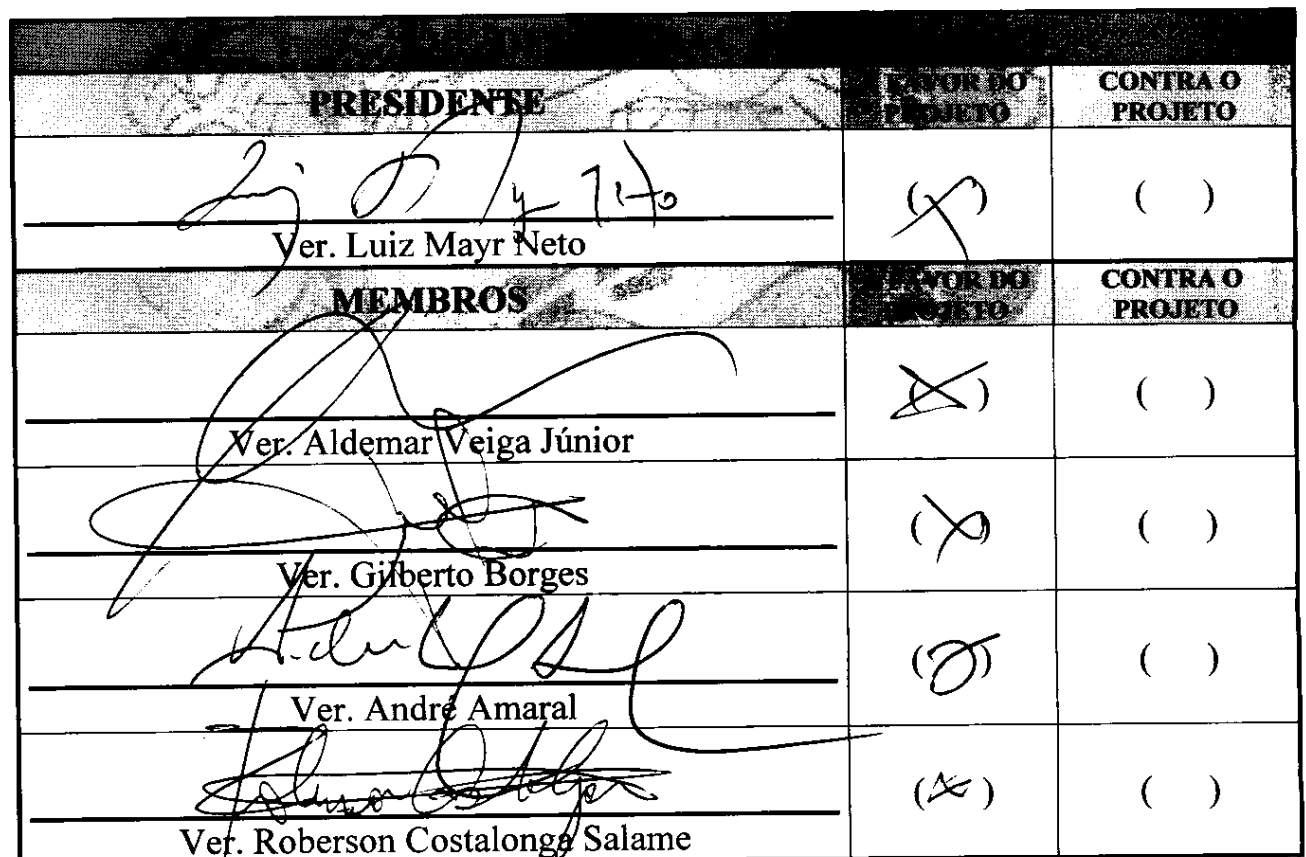 PRESIDENTE
FAVOR DO PROJETO
CONTRA O PROJETO
( )
Ver. Luiz Mayr Neto
MEMBROS
FAVOR DO PROJETO
CONTRA O PROJETO
(X) ( )
Ver. Aldemar Veiga Júnior
(X) ( )
Ver. Gilberto Borges
( )
Ver. André Amaral
(X) ( )
Ver. Roberson Costalonga Salame